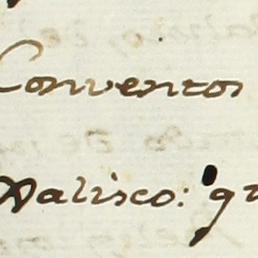 Conventos
Xalisco: qu